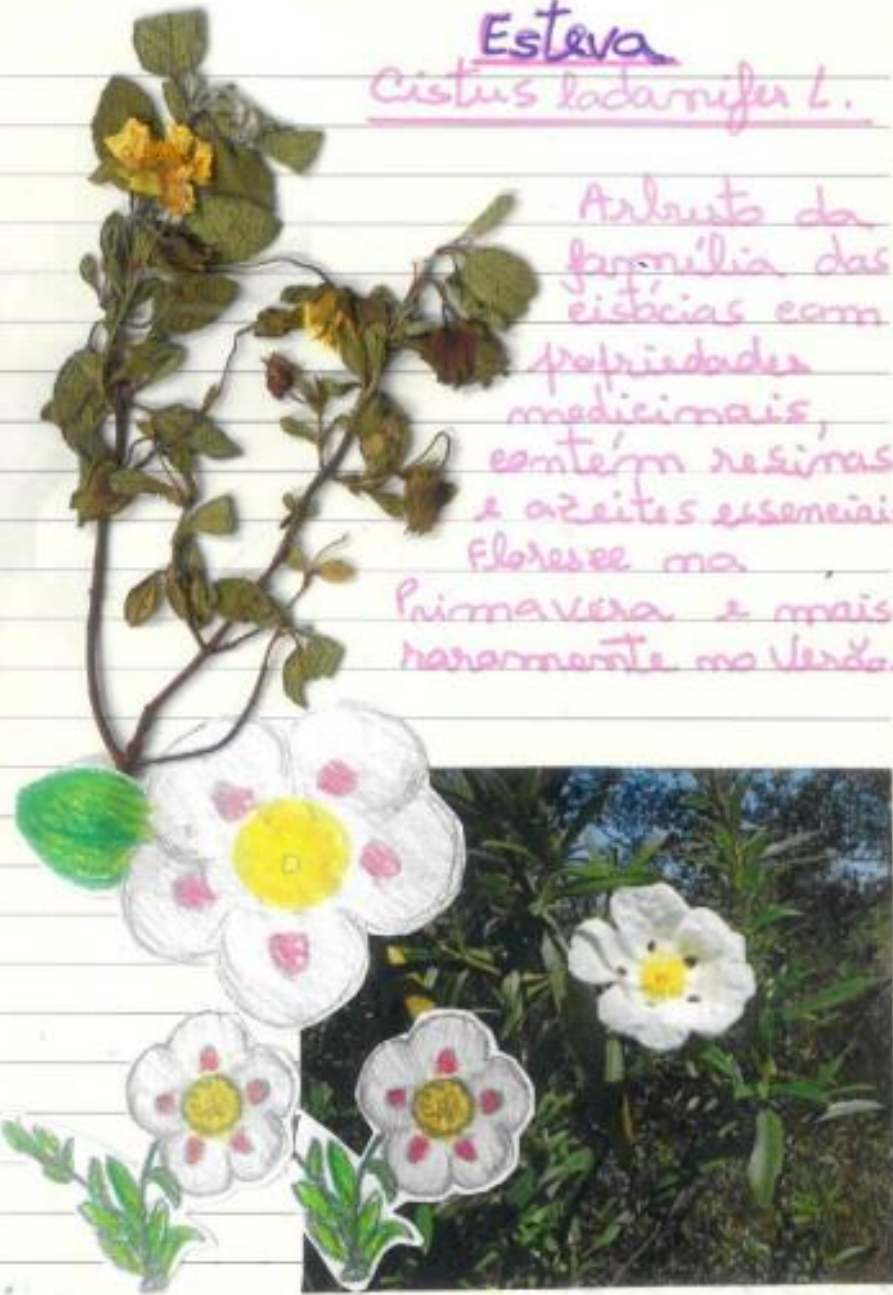 Esteva
Cistus ladanifer L.
Arbusto da
família das
cistácias com
propriedades
medicinais,
contém resinas
e azeites essenciai
Floresce na
Primavera e mais
raramente no Verão